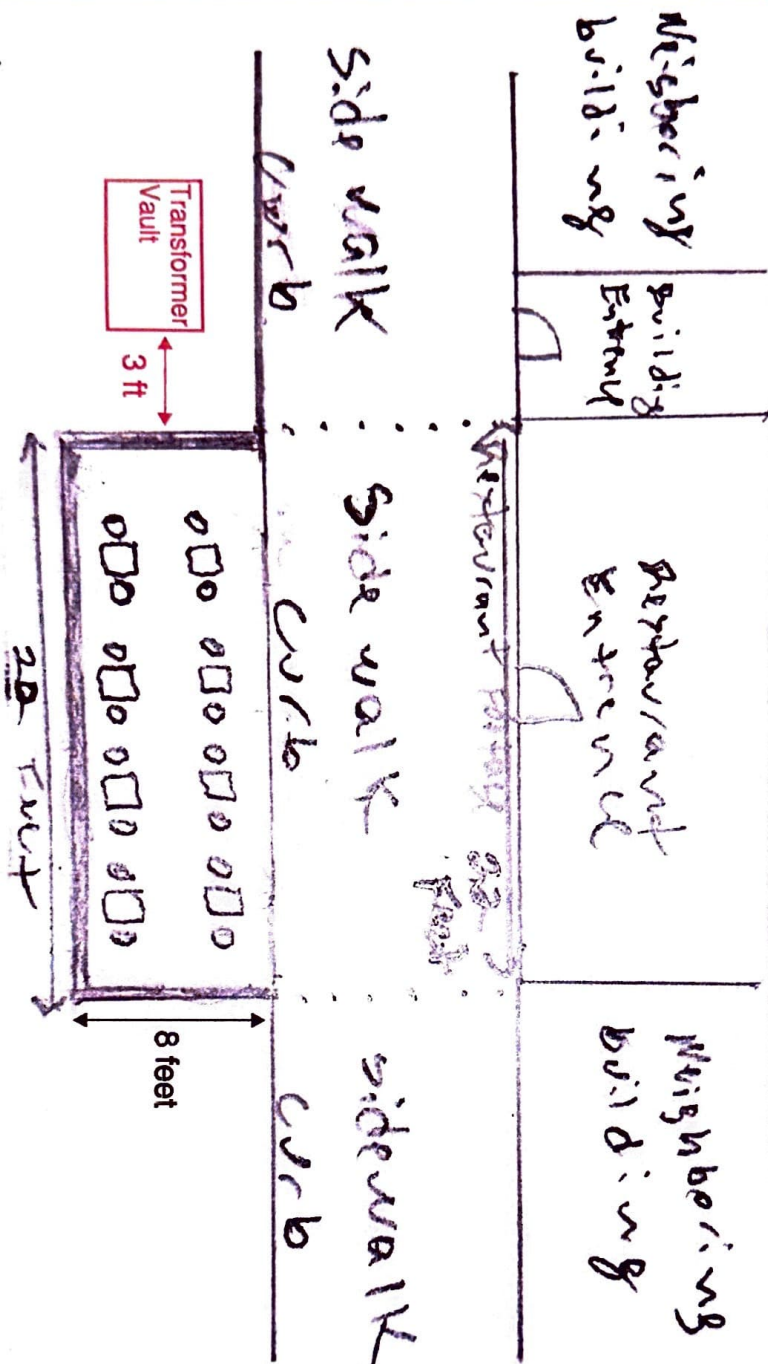 Neigboring
building
Building
Restaurant
Entrence
Neighboring
building
Restaurant
22
Feet
Side walk
Side walk
sidewalk
Curb
Curb
Curb
Transformer
Vault
3 ft
8 feet
Feet